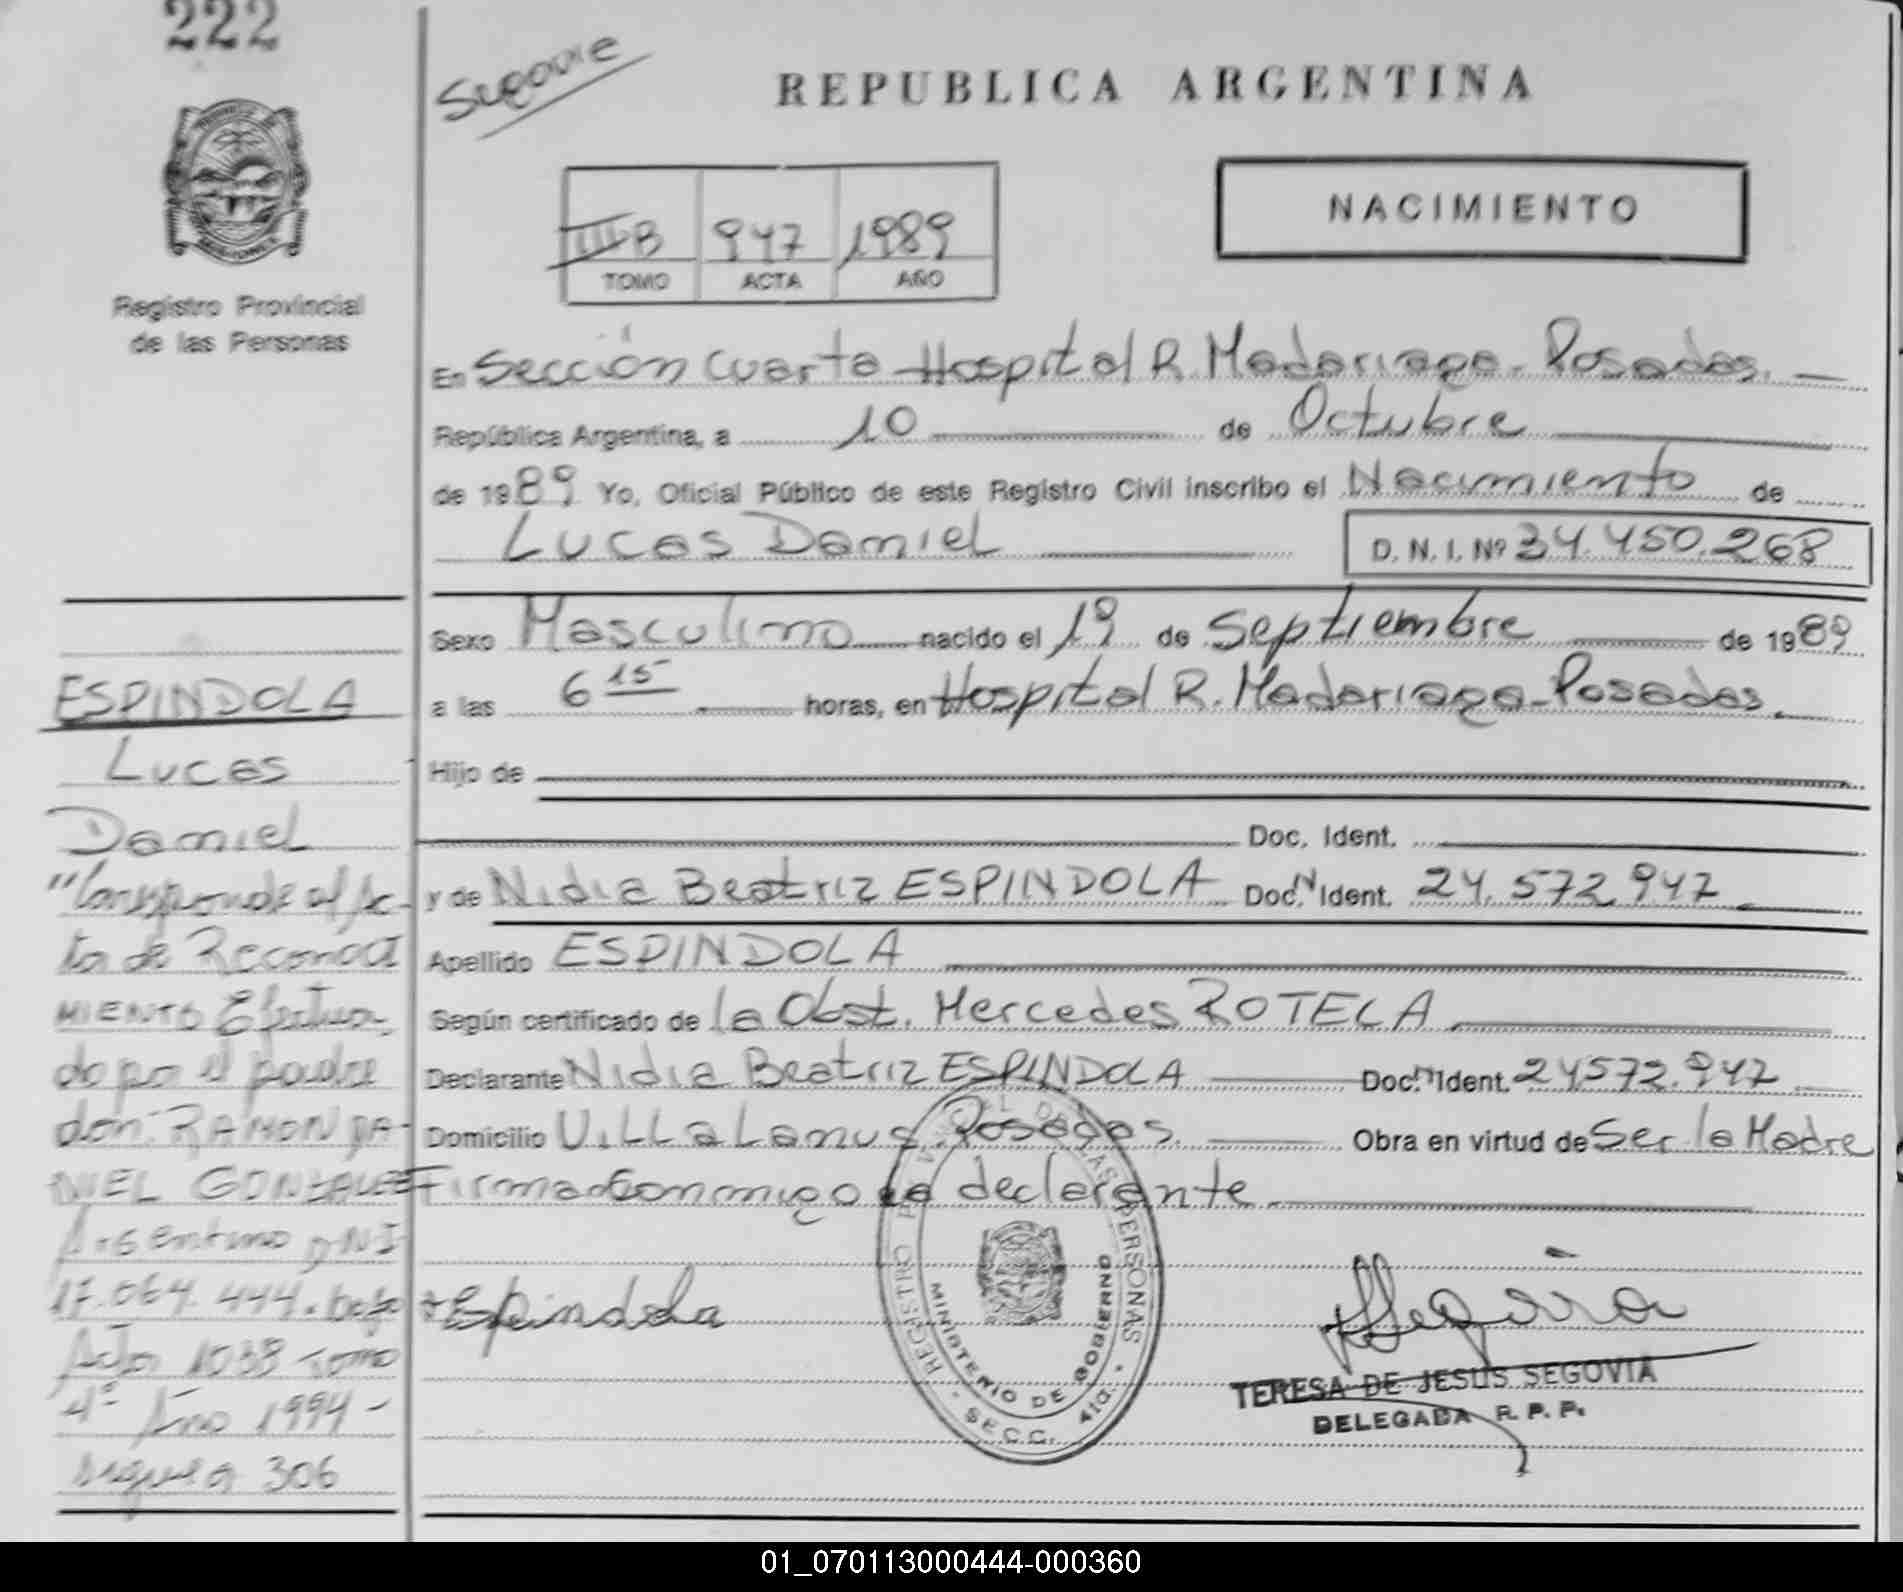 222
Registro Provincial
de las Personas
REPUBLICA ARGENTINA
NACIMIENTO
III B 947 1989
TOMO ACTA AÑO
En Sección Cuarta Hospital R. Madariaga - Posadas.
República Argentina, a 10 de Octubre
de 1989 Yo, Oficial Público de este Registro Civil inscribo el Nacimiento de
Lucas Daniel D. N. I. Nº 34.450.268
Sexo Masculino nacido el 19 de Septiembre de 1989
a las 6 15 horas, en Hospital R. Madariaga - Posadas.
Hijo de
Doc. Ident.
y de Nidia Beatriz ESPINDOLA Doc. N Ident. 24.572.947
Apellido ESPINDOLA
Según certificado de la Obst. Mercedes ROTELA
Declarante Nidia Beatriz ESPINDOLA Doc. N Ident. 24572.947
Domicilio Villa Lanus. Posadas. Obra en virtud de Ser la Madre
Firma Conmigo la declarante
Espindola
TERESA DE JESUS SEGOVIA
DELEGADA R. P. P.
REGISTRO PROVINCIAL DE LAS PERSONAS
MINISTERIO DE GOBIERNO
SECC. 4ta.
ESPINDOLA
Lucas
Daniel
"Corresponde al Ac-
ta de Reconoci
MIENTO Efectua
do por el padre
don: RAMON DA-
NIEL GONZALEZ
Argentino DNI
17.064.444. bajo
Acta 1038 Tomo
4º Año 1994 -
306
01_070113000444-000360